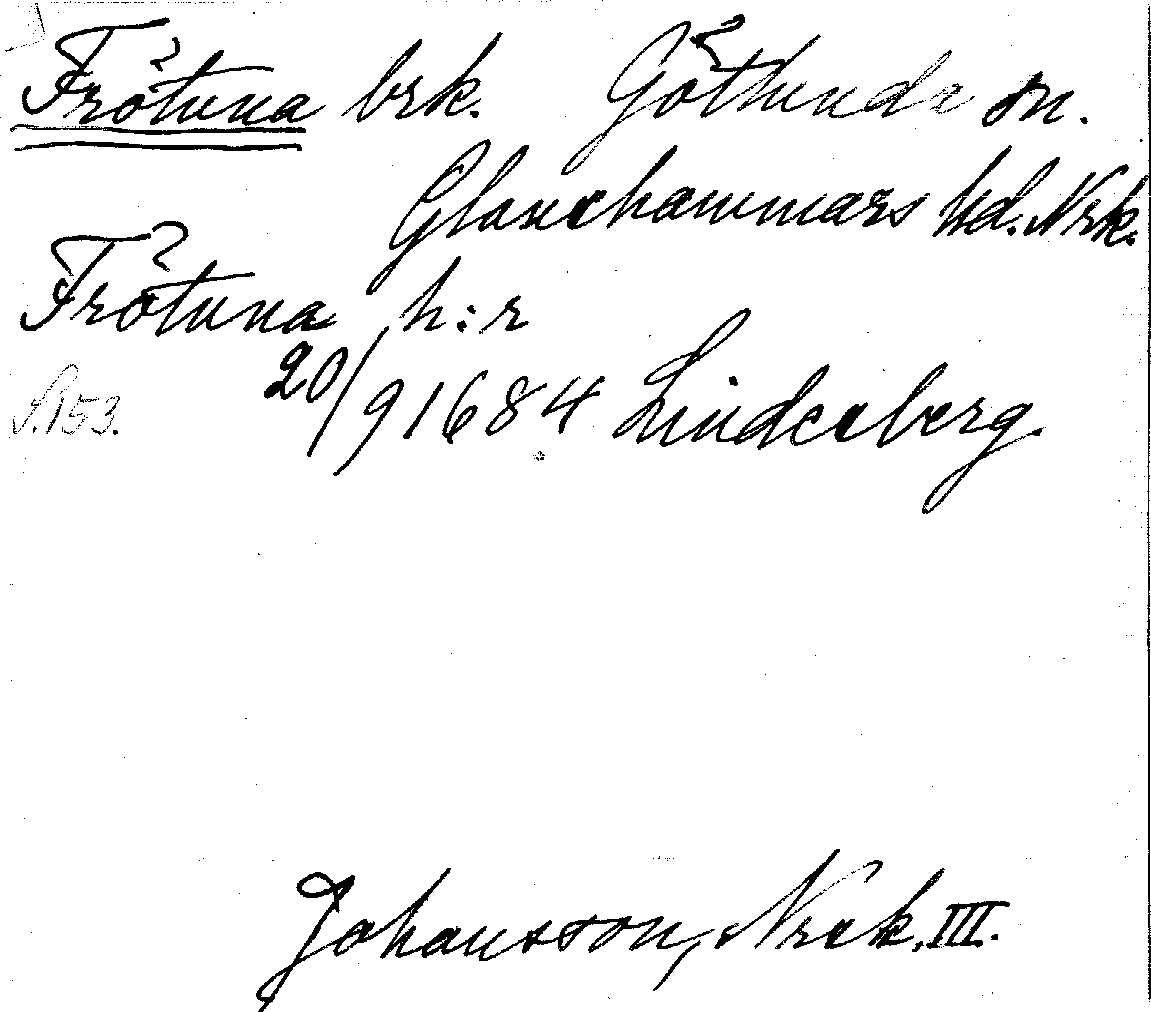 Frötuna brk. Götlunda sn.
Glanshammars hd. Nrk.
Frötuna h:r
S. 153. 20/9 1684 Lindesberg.
Johansson, Nrek. III.